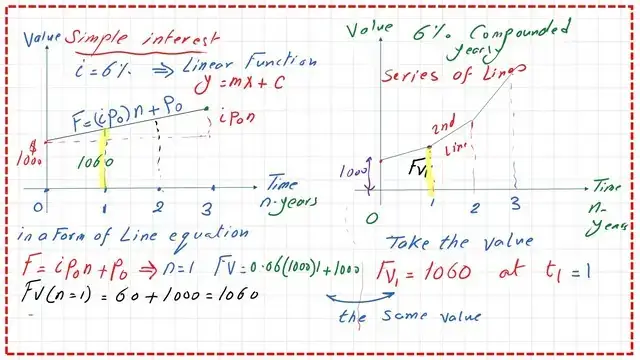 Value
Simple interest
i = 6% ⇒ Linear Function
y = mx + C
F = (iP₀)n + P₀
iP₀n
$
1000
1060
0 1 2 3
Time
n-years
in a Form of Line equation
F = iP₀n + P₀ ⇒ n=1 FV = 0.06(1000)1 + 1000
FV(n=1) = 60 + 1000 = 1060
Value
6% Compounded
yearly
Series of Lines
2nd
Line
1000
FV₁
0 1 2 3
Time
n-
years
Take the value
FV₁ = 1060 at t₁ = 1
the same value